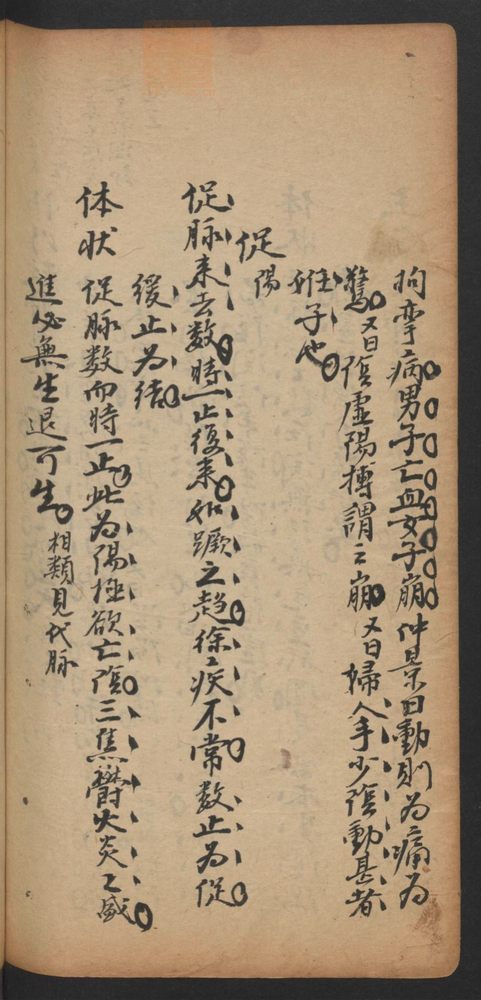 拘挛病男子亡血女子崩仲景曰動則为痛为
驚又曰陰虛陽搏謂之崩又曰婦人手少陰動甚者
妊子也
促陽
促脉来去数時一止復来如蹶之趋徐疾不常数止为促
緩止为结
体状 促脉数而時一止此为陽極欲亡陰三焦欝火炎之盛
進必無生退可生 相類見代脉